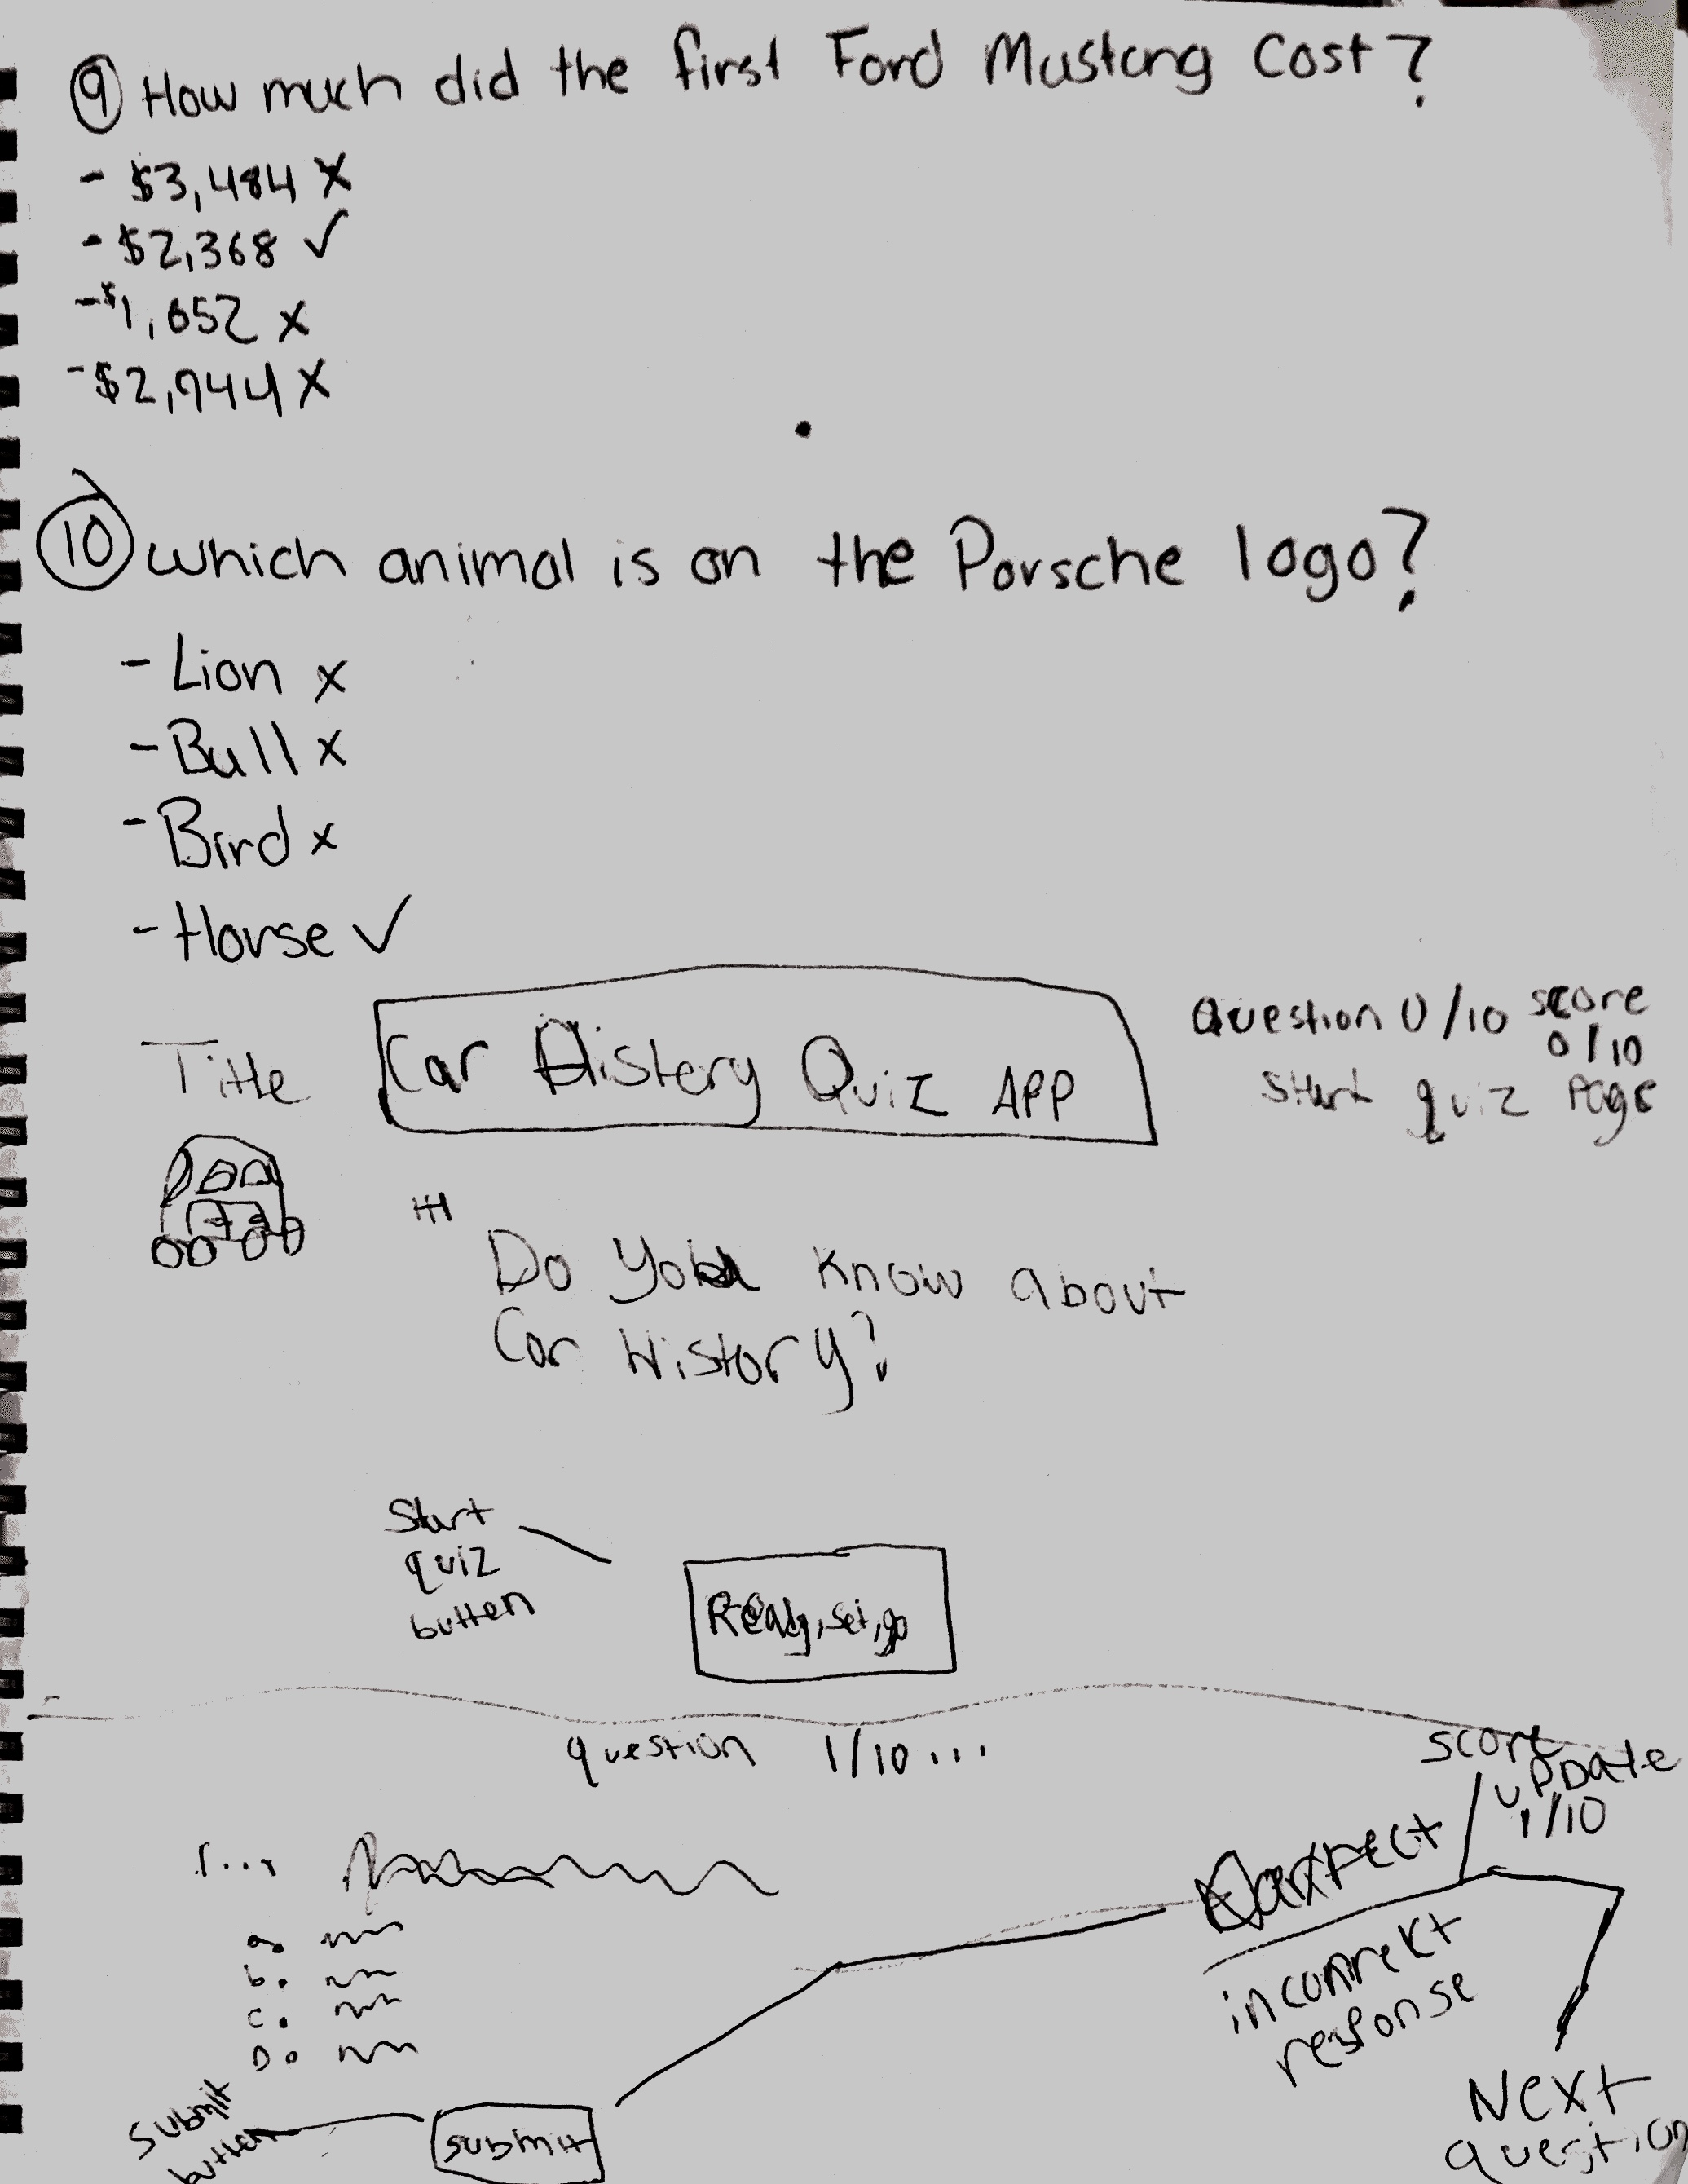 9 How much did the first Ford Mustang Cost?
- $3,484 X
- $2,368 ✓
- $1,652 X
- $2,944 X
10 which animal is on the Porsche logo?
- Lion x
- Bull x
- Bird x
- Horse ✓
Title
Car Histery Quiz APP
Question 0/10 score
0/10
Start quiz Page
Do You know about
Car History?
Start
quiz
button
Ready, set, go
question 1/10 ...
score
upDate
1/10
1...
Correct
a.
b.
c.
D.
incorrekt
response
submit
button
submit
Next
question